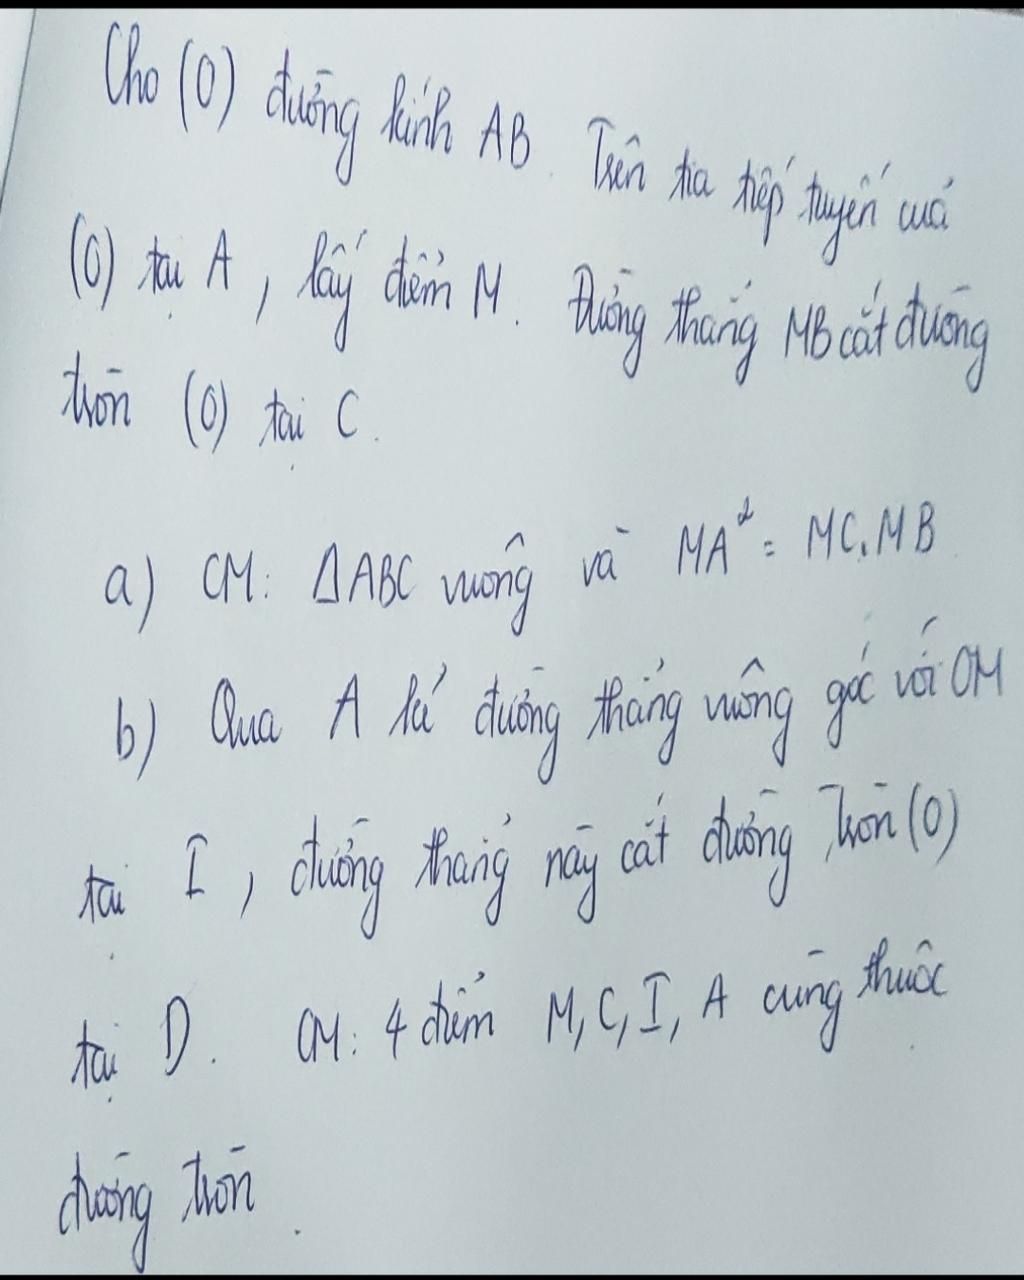 Cho (O) đường kính AB. Trên tia tiếp tuyến của
(O) tại A, lấy điểm M. Đường thẳng MB cắt đường
tròn (O) tại C.
a) CM: ΔABC vuông và MA² = MC.MB
b) Qua A kẻ đường thẳng vuông góc với OM
tại I, đường thẳng này cắt đường tròn (O)
tại D. CM: 4 điểm M, C, I, A cùng thuộc
đường tròn.